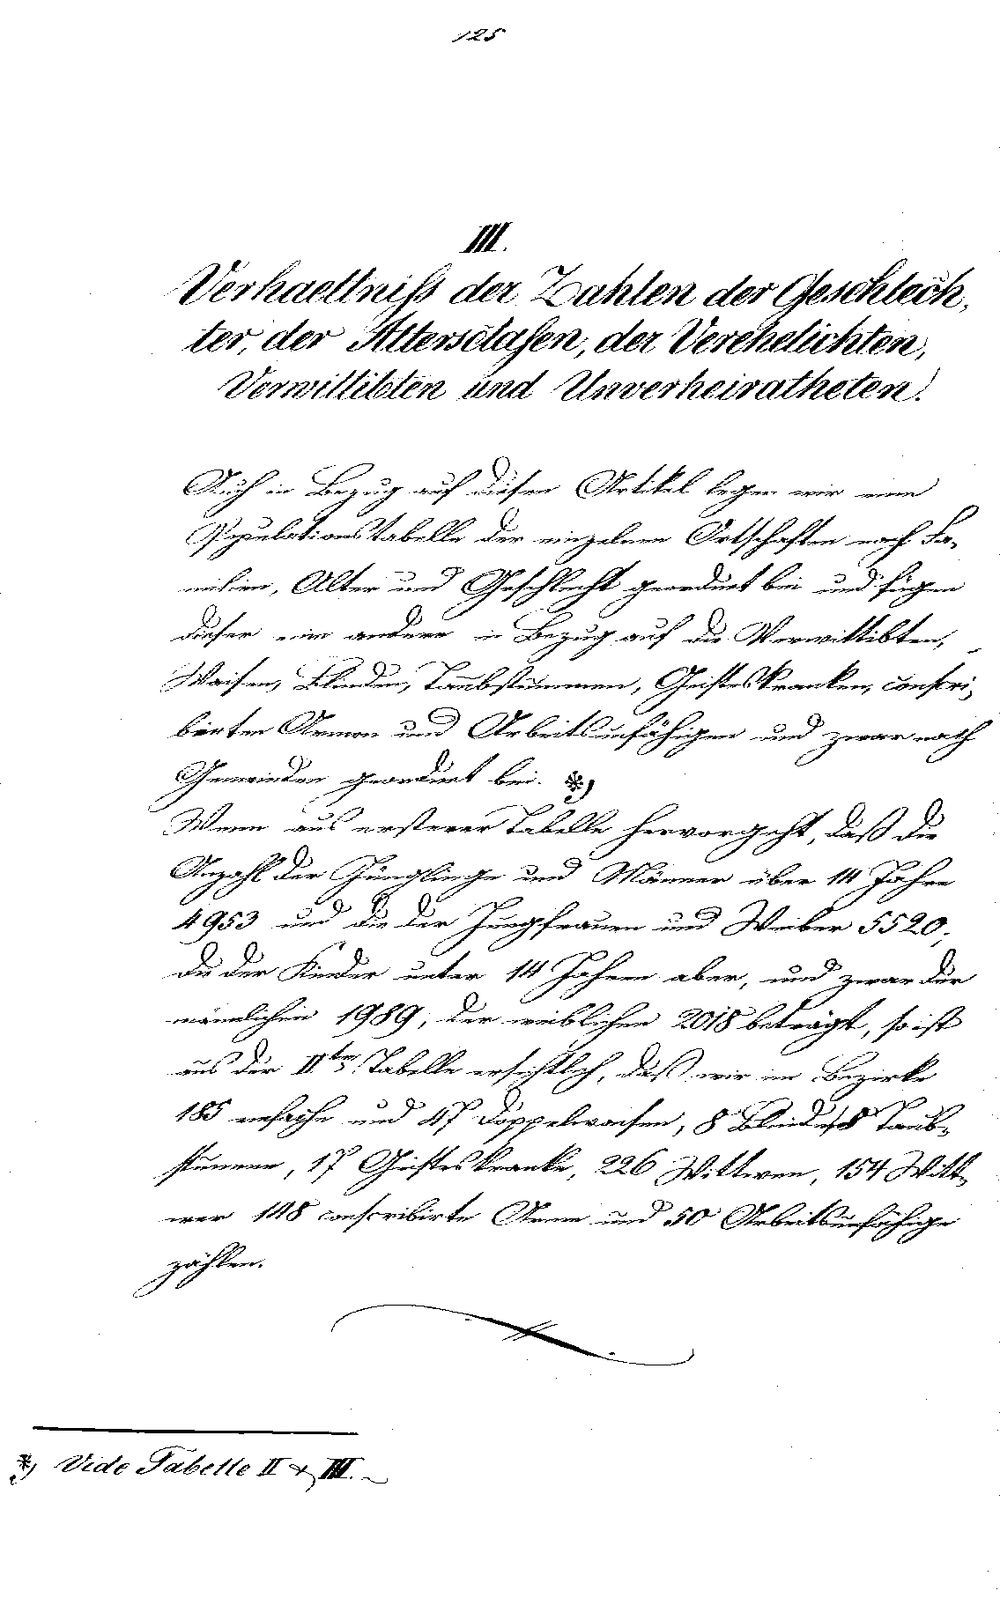 125
III.
Verhaeltniss der Zahlen der Geschlech,
ter, der Altersclassen, der Verehelichten,
Verwittibten und Unverheiratheten.
Auch in Bezug auf diesen Artikel legen wir eine
Populationstabelle der einzelnen Ortschaften nach Fa,
milien, Alter und Geschlecht geordnet bei und fügen
dieser eine andere in Bezug auf die Verwittibten,
Waisen, Blinden, Taubstummen, Geisteskranken, conscri,
birten Armen und Arbeitsunfähigen und zwar nach
Gemeinden geordnet bei. *)
Wenn aus ersterer Tabelle hervorgeht, daß die
Anzahl der Jünglinge und Männer über 14 Jahre
4953 und die der Jungfrauen und Weiber 5520,
die der Kinder unter 14 Jahren aber, und zwar der
männlichen 1989, der weiblichen 2018 beträgt, so ist
aus der IIten Tabelle ersichtlich, daß wir im Bezirke
185 einfache und 47 Doppelwaisen, 8 Blinde, 8 Taub-
stumme, 17 Geisteskranke, 226 Wittwen, 154 Witt,
wer 148 conscribirte Arme und 50 Arbeitsunfähige
zählen.
*) Vide Tabelle II & III.